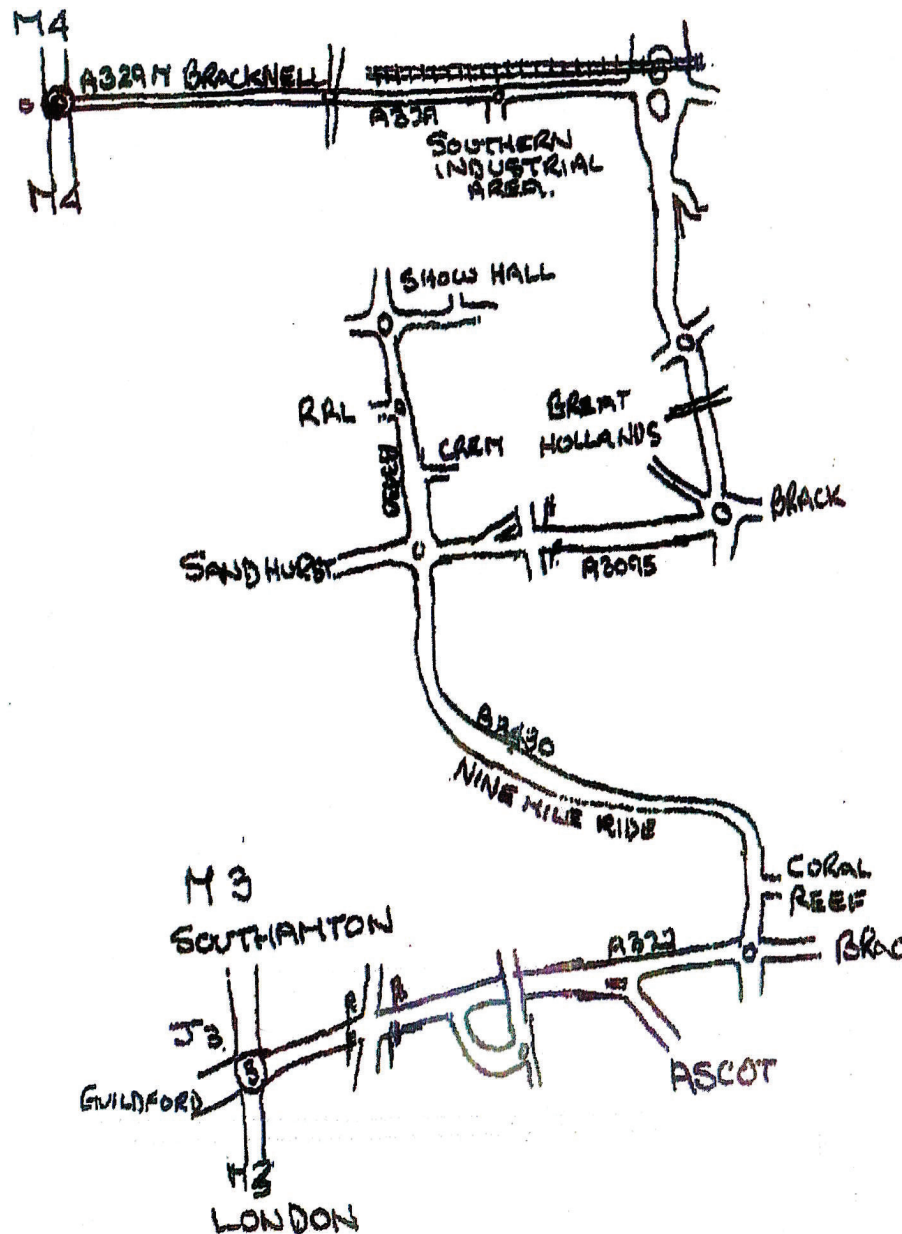 M4
A329M BRACKNELL
A329
SOUTHERN
INDUSTRIAL
AREA.
M4
SHOW HALL
RRL
CREM
GREAT
HOLLANDS
BRACK
SANDHURST
A3095
NINE MILE RIDE
CORAL
REEF
M3
SOUTHAMTON
A322
BRAC
J3
3
GUILDFORD
ASCOT
M3
LONDON